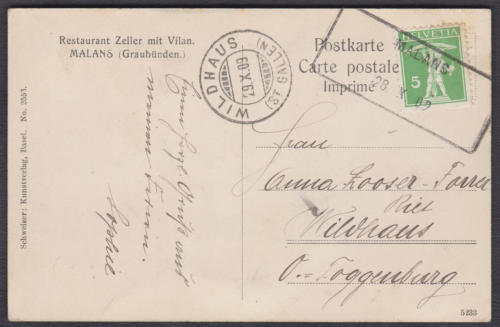 Restaurant Zeller mit Vilan.
MALANS (Graubünden).
WILDHAUS
(ST. GALLEN)
29.X.09
Postkarte
Carte postale
Imprimé
HELVETIA
5
MALANS
28. X. 09
Schweizer: Kunstverlag, Basel. No. 3551.
Grüsse aus
Sophie
Frau
Anna Looser-Forrer
Riet
Wildhaus
O.=Toggenburg
5233